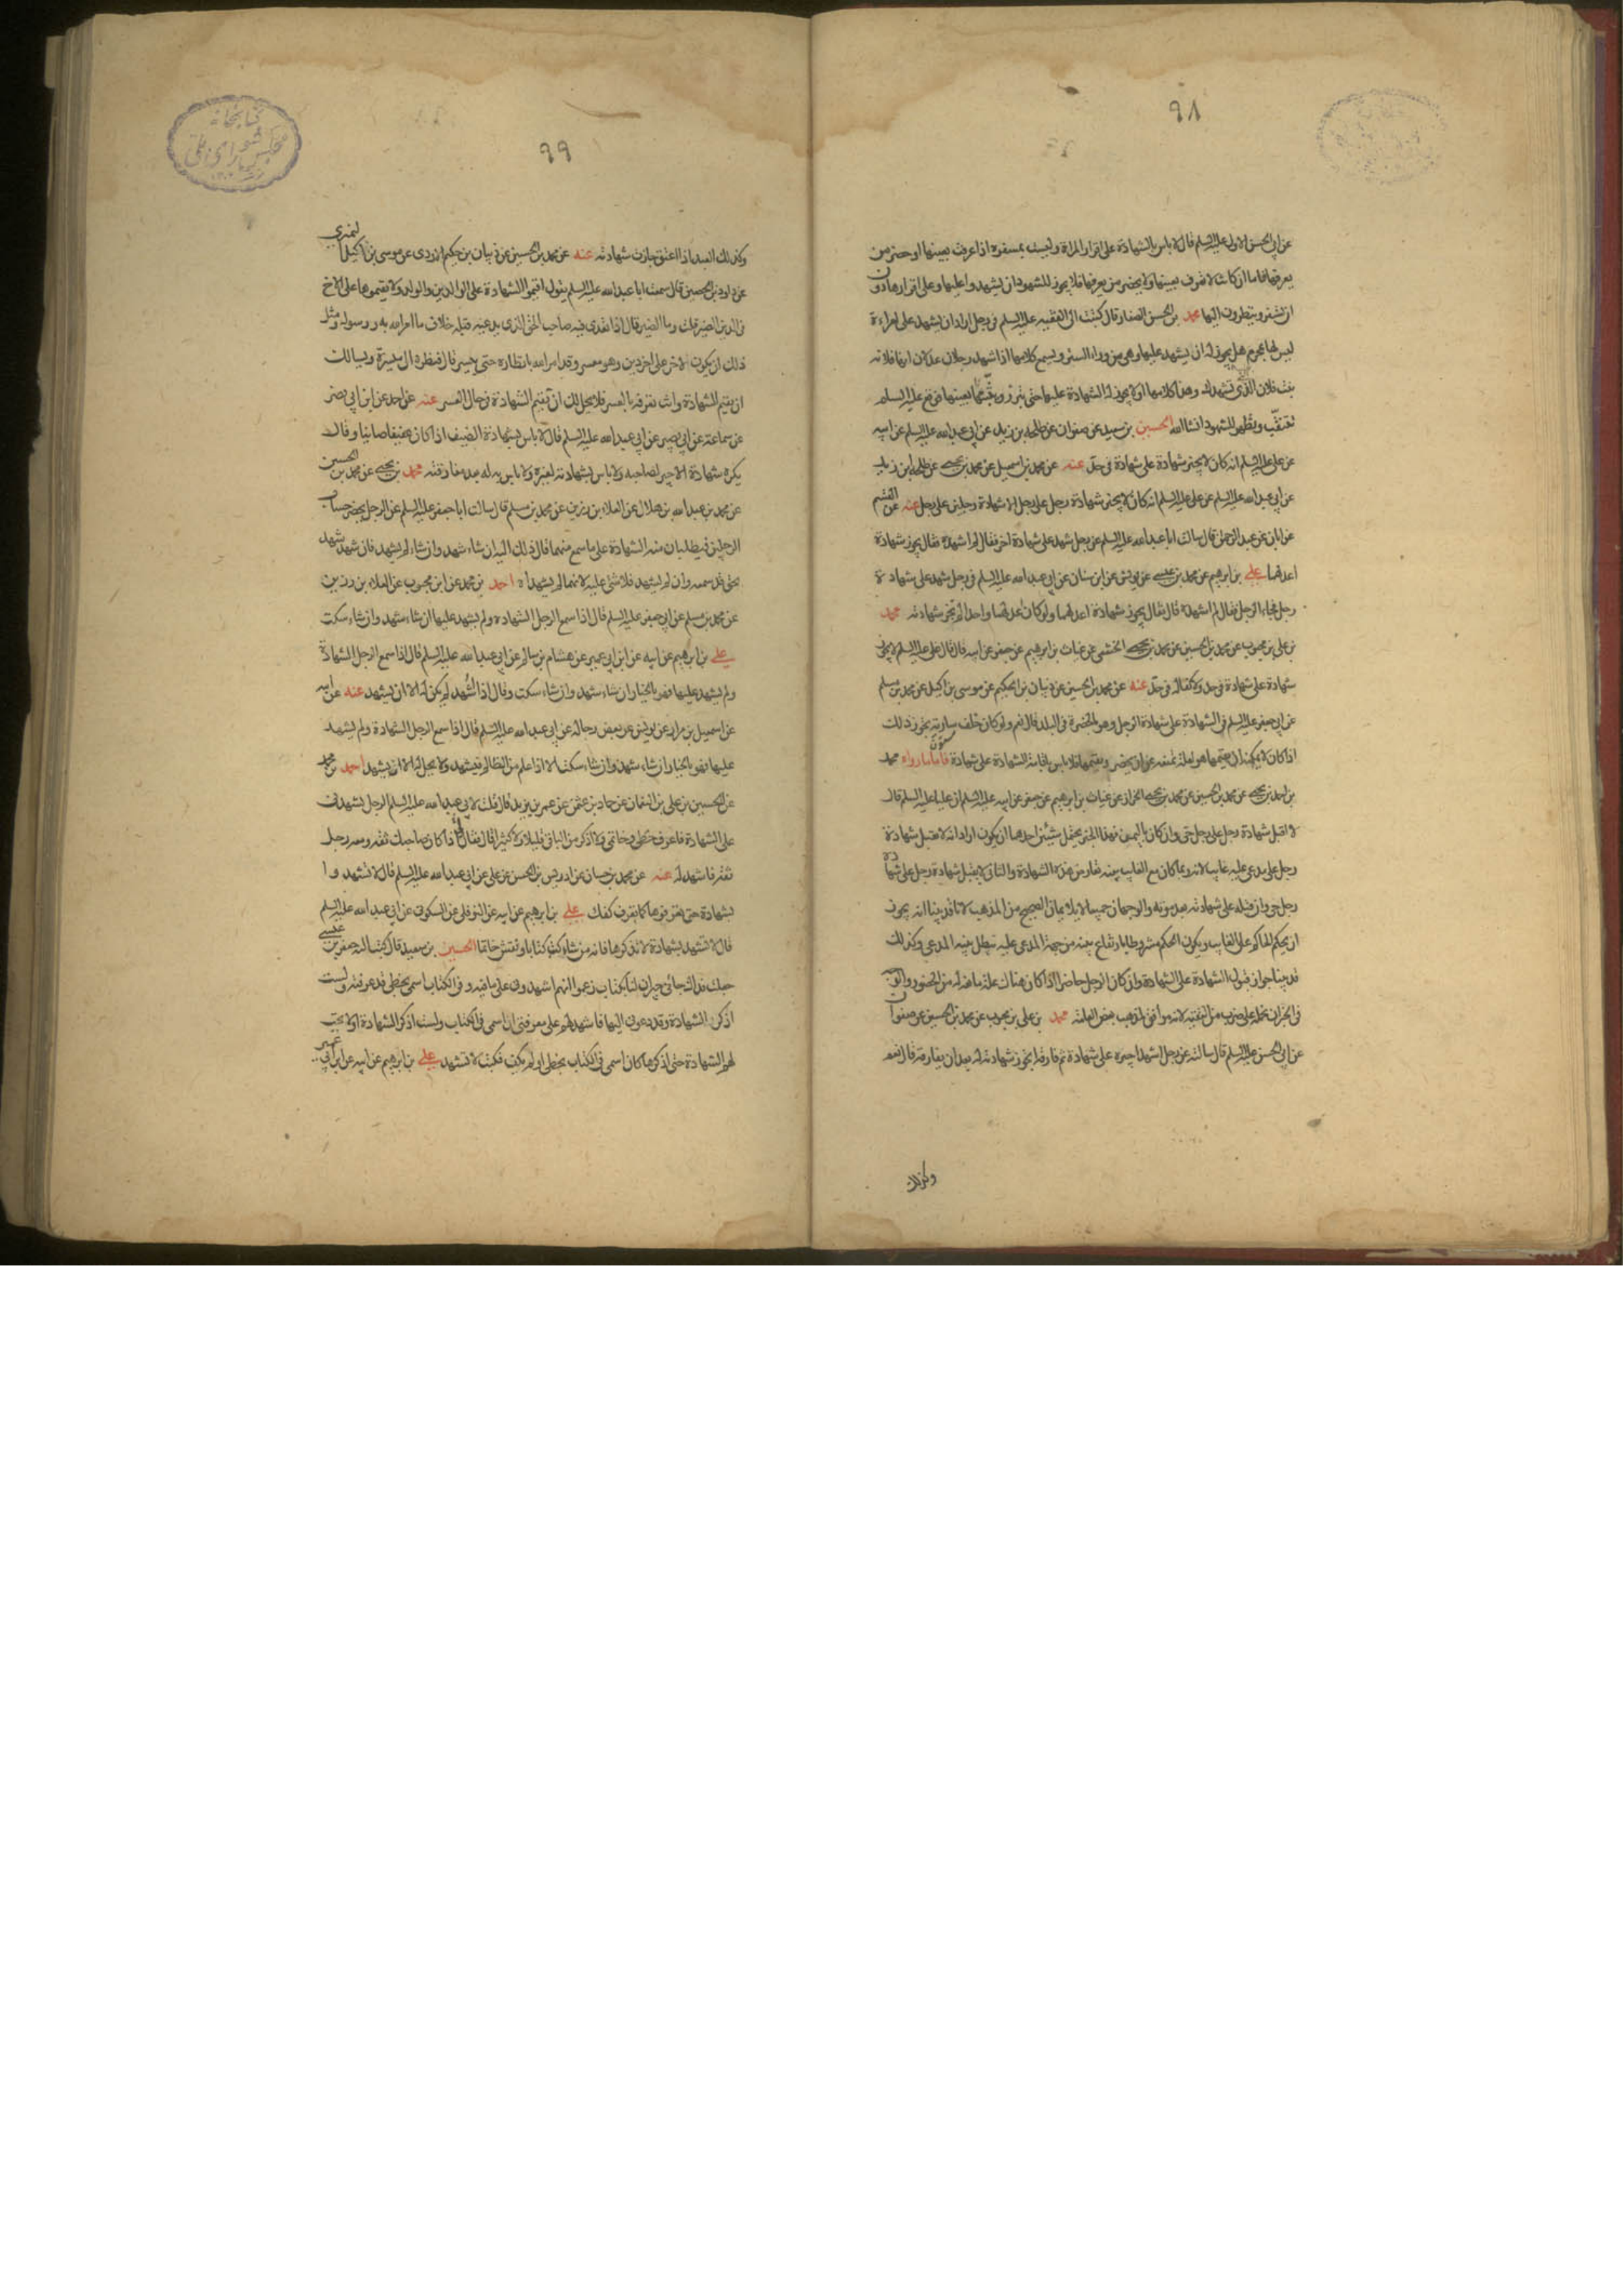 ٩٨
عن ابى الحسن الاول عليه السلم قال لا باس بالشهادة على اقرار المراة وليست بمسفرة اذا عرفت بعينها او حضر من
يعرفها فاما ان كانت لا تعرف بعينها ولا يحضر من يعرفها فلا يجوز للشهود ان يشهدوا عليها وعلى اقرارها دون
ان تسفر وينظرون اليها محمد بن الحسن الصفار قال كتبت الى الفقيه عليه السلم فى رجل اراد ان يشهد على امراءة
ليس لها بمحرم هل يجوز له ان يشهد عليها وهى من وراء الستر ويسمع كلامها اذا شهد رجلان عدلان انها فلانه
بنت فلان الذى تشهدك وهذا كلامها او لا يجوز له الشهادة عليها حتى تبرز ويثبتها بعينها فوقع عليه السلم
تتنقب وتظهر للشهود انشاالله الحسين بن سعيد عن صفوان عن طلحه بن زيد عن ابى عبدالله عليه السلم عن ابيه
عن على عليه السلم انه كان لا يجيز شهادة على شهادة فى حدّ عنه عن محمد بن اسمعيل عن محمد بن يحيى عن طلحه ابن زيد
عن ابى عبدالله عليه السلم عن على عليه السلم انه كان لا يجيز شهادة رجل على رجل الا شهادة رجلين على رجل عنه عن القسم
عن ابان عن عبد الرحمن قال سالت ابا عبدالله عليه السلم عن رجل شهد على شهادة اخر فقال لم اشهده فقال يجوز شهادة
اعدلهما على بن ابرهيم عن محمد بن عيسى عن يونس عن ابن سنان عن ابى عبد الله عليه السلم فى رجل شهد على شهادة
رجل فجاء الرجل فقال لم اشهده قال فقال يجوز شهادة اعدلهما ولو كان اعدلهما واحدا لم تجز شهادته محمد
بن على بن محبوب عن محمد بن الحسين عن محمد بن يحيى الخثعمى عن غياث بن ابرهيم عن جعفر عن ابيه قال قال على عليه السلم لا يجوز
شهادة على شهادة فى حد ولا كفالة فى حدّ عنه عن محمد بن الحسين عن ذبيان بن الحكيم عن موسى بن اكيل عن محمد بن مسلم
عن ابى جعفر عليه السلم فى الشهادة على شهادة الرجل وهو بالحضرة فى البلد قال نعم ولو كان خلف سارية يجوز ذلك
اذا كان لا يمكنه ان يقيمها هو لعلة تمنعه عن ان يحضر ويقيمها فلا باس باقامة الشهادة على شهادة فاما ما رواه محمد
بن احمد بن يحيى عن محمد بن الحسين عن محمد بن يحيى الخزاز عن غياث بن ابرهيم عن جعفر عن ابيه عليه السلم ان عليا عليه السلم قال
لا اقبل شهادة رجل على رجل حى وان كان باليمن فهذا الخبر يحتمل شيئين احدهما ان يكون اراد انه لا تقبل شهادة
رجل على مدعى عليه غايبا لانه ربما كان مع الغايب بينه تعارض هذه الشهادة والثانى لا يقبل شهادة رجل على شهادة
رجل حى وان قبله على شهادته بعد موته والوجهان جميعا لا يلايمان الصحيح من المذهب لانا قد بينا انه يجوز
ان يحكم الحاكم على الغايب ويكون الحكم مشروطا بارتفاع بينه من جهة المدعى عليه تبطل بينه المدعى وكذلك
قد بينا جواز قبول الشهادة على الشهادة وان كان الرجل حاضرا اذا كان هناك علة مانعة له من الحضور والوجه
فى الخبر ان نحمله على ضرب من التقية لانه موافق لمذهب بعض العامة محمد بن على بن محبوب عن محمد بن الحسين عن صفوان
عن ابى الحسن عليه السلم قال سالته عن رجل اشهد اجيره على شهادة ثم فارقه اتجوز شهادته له بعد ان يفارقه قال نعم
وكذلك
٩٩
وكذلك العبد اذا اعتق جازت شهادته عنه عن محمد بن الحسين عن ذبيان بن حكيم الاودى عن موسى بن اكيل النميرى
عن داود بن الحصين قال سمعت ابا عبدالله عليه السلم يقول اقيموا الشهادة على الوالدين والولد ولا تقيموها على الاخ
فى الدين الضير قلت وما الضير قال اذا تعدى فيه صاحب الحق الذى يدعيه قبله خلاف ما امر الله به ورسوله ومثل
ذلك ان يكون لاخر على اخر دين وهو معسر وقد امر الله بانظاره حتى ييسر قال فنظرة الى ميسرة ويسالك
ان تقيم الشهادة وانت تعرفه بالعسر فلا يحل لك ان تقيم الشهادة فى حال العسر عنه عن احمد عن ابن ابى نصر
عن سماعه عن ابى بصير عن ابى عبدالله عليه السلم قال لا باس بشهادة الضيف اذا كان عفيفا صاينا وقال
يكره شهادة الاجير لصاحبه ولا باس بشهادته لغيره ولا باس به له بعد مفارقته محمد بن يحيى عن محمد بن الحسين
عن محمد بن عبدالله بن هلال عن العلاء بن رزين عن محمد بن مسلم قال سالت ابا جعفر عليه السلم عن الرجل يحضر حساب
الرجلين فيطلبان منه الشهادة على ما سمع منهما قال ذلك اليه ان شاء شهد وان شاء لم يشهد فان شهد شهد
بحق قد سمعه وان لم يشهد فلا شئ عليه لانهما لم يشهداه احمد بن محمد عن ابن محبوب عن العلاء بن رزين
عن محمد بن مسلم عن ابى جعفر عليه السلم قال اذا سمع الرجل الشهاده ولم يشهد عليها ان شاء شهد وان شاء سكت
على بن ابرهيم عن ابيه عن ابن ابى عمير عن هشام بن سالم عن ابى عبدالله عليه السلم قال اذا سمع الرجل الشهادة
ولم يشهد عليها فهو بالخيار ان شاء شهد وان شاء سكت وقال اذا اشهد لم يكن له الا ان يشهد عنه عن ابيه
عن اسمعيل بن مرار عن يونس عن بعض رجاله عن ابى عبدالله عليه السلم قال اذا سمع الرجل الشهادة ولم يشهد
عليها فهو بالخيار ان شاء شهد وان شاء سكت الا اذا علم من الظالم فيشهد ولا يحل له الا ان يشهد احمد بن محمد
عن الحسين بن على بن النعمان عن حماد بن عثمن عن عمر بن يزيد قال قلت لابى عبدالله عليه السلم الرجل يشهدنى
على الشهادة فاعرف خطى وخاتمى ولا اذكر من الباقى قليلا ولا كثيرا قال فقال لى اذا كان صاحبك ثقه ومعه رجل
ثقه فاشهد له عنه عن محمد بن حسان عن ادريس بن الحسن عن على عن ابى عبدالله عليه السلم قال لا تشهدوا
بشهادة حتى تعرفوها كما تعرف كفك على بن ابرهيم عن ابيه عن النوفلى عن السكونى عن ابى عبد الله عليه السلم
قال لا تشهد بشهادة لا تذكرها فانه من شاء كتب كتابا ونقش خاتما الحسين بن سعيد قال كتب اليه جعفر بن عيسى
جعلت فداك جائنى جيران لنا بكتاب زعموا انهم اشهدونى على ما فيه وفى الكتاب اسمى بخطى قد عرفته ولست
اذكر الشهادة وقد دعونى اليها فاشهد لهم على معرفتى ان اسمى فى الكتاب ولست اذكر الشهادة او لا تجب
لهم الشهادة حتى اذكرها كان اسمى فى الكتاب بخطى او لم يكن فكتب لا تشهد على بن ابرهيم عن ابيه عن ابن ابى عمير
كتابخانه
مجلس شوراى ملى